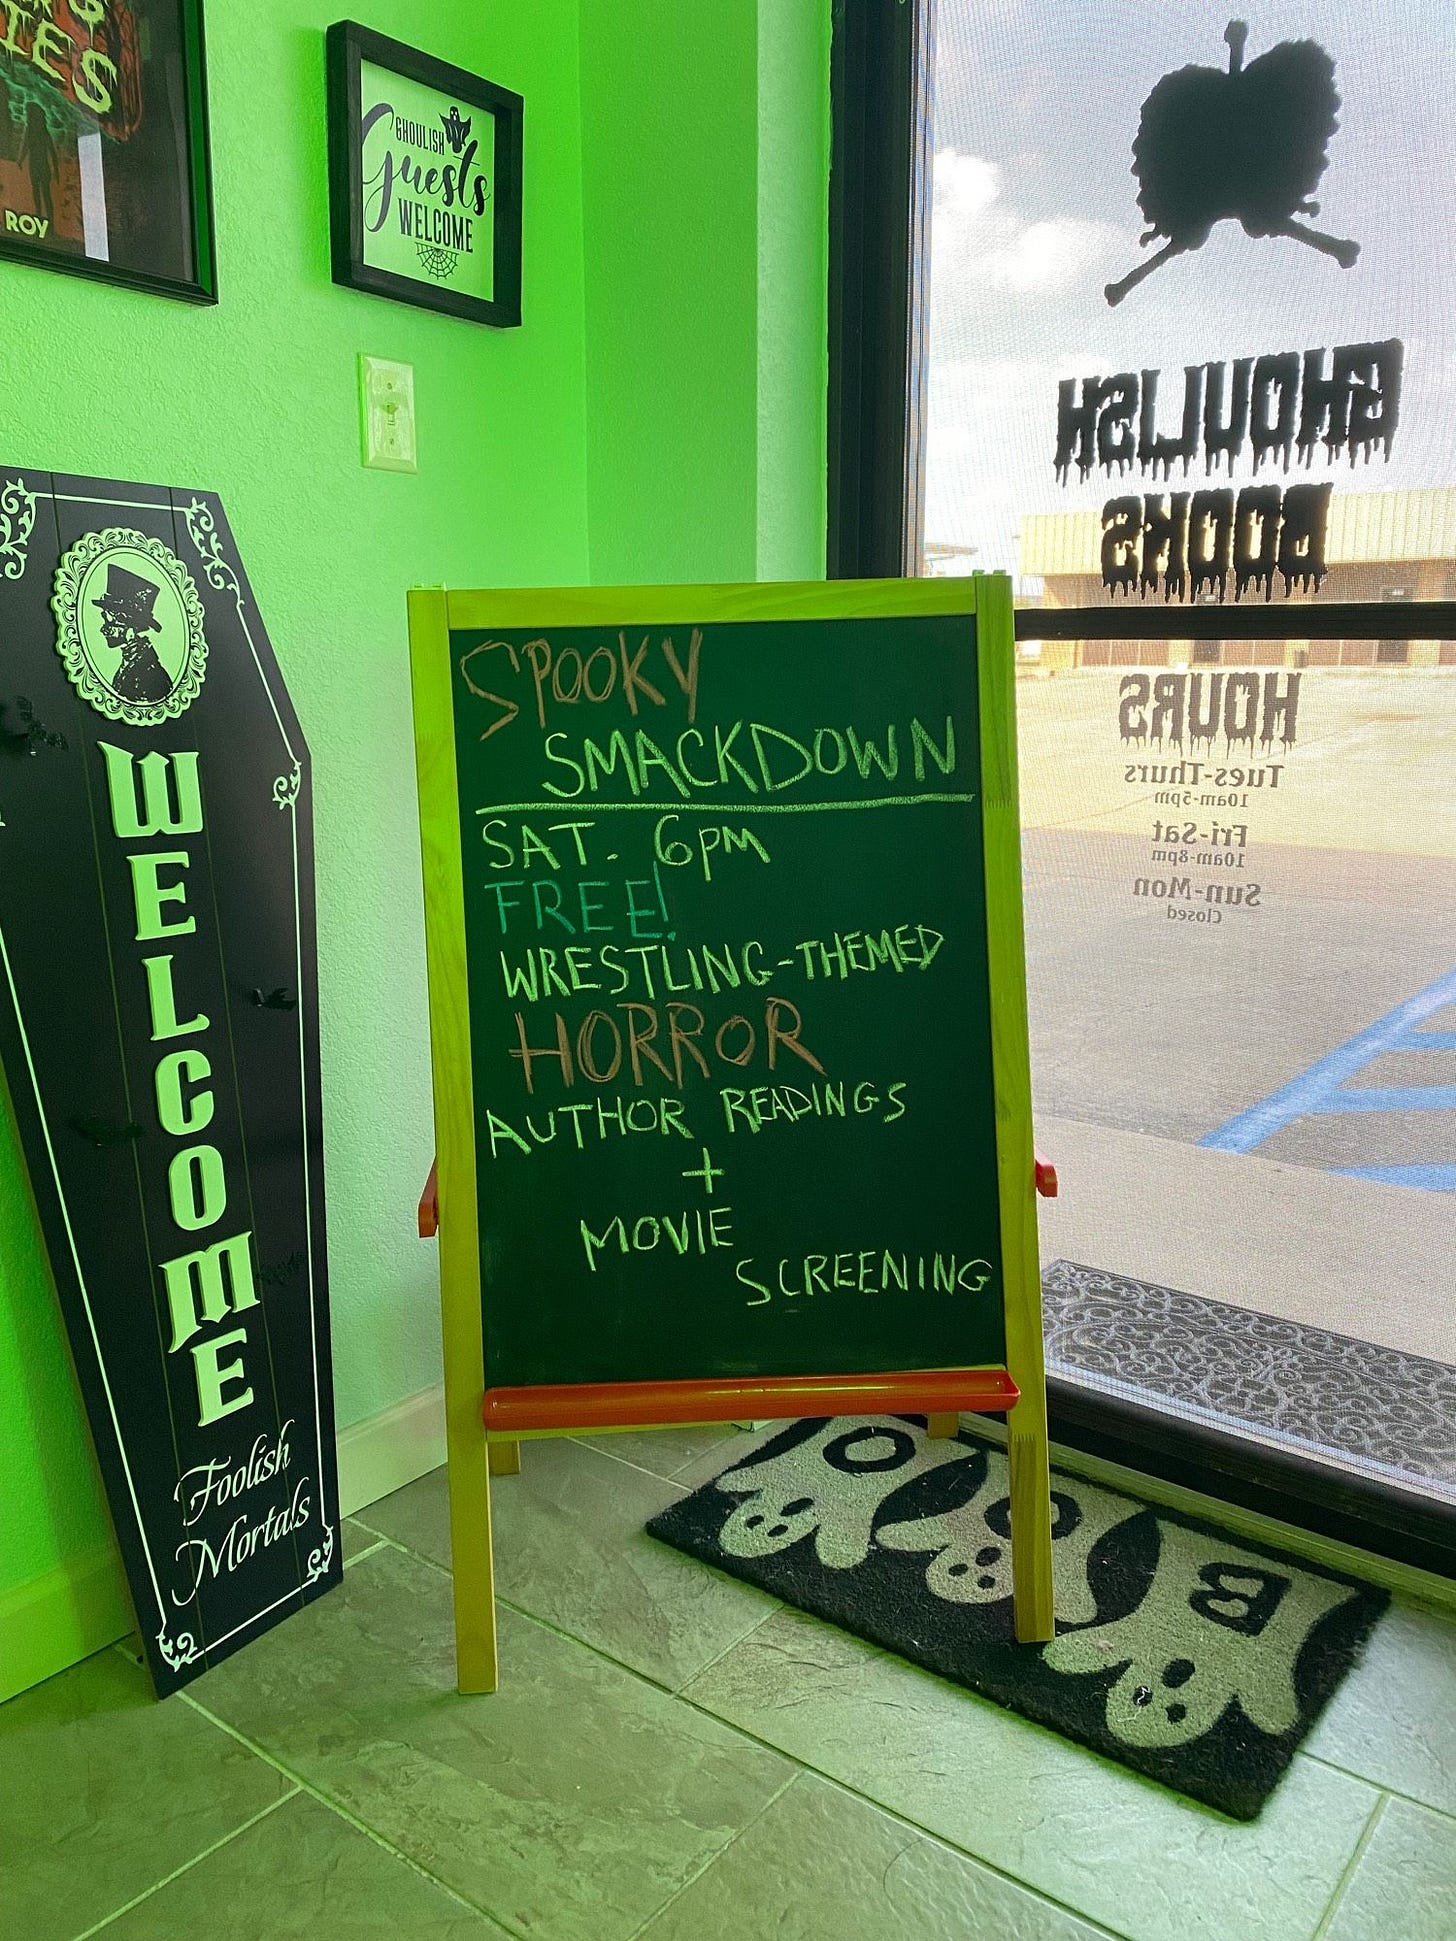 IES
ROY
GHOULISH
Guests
WELCOME
WELCOME
Foolish
Mortals
SPOOKY
SMACKDOWN
SAT. 6PM
FREE!
WRESTLING-THEMED
HORROR
AUTHOR READINGS
+
MOVIE
SCREENING
GHOULISH
BOOKS
HOURS
Tues-Thurs
10am-5pm
Fri-Sat
10am-8pm
Sun-Mon
Closed
BOO